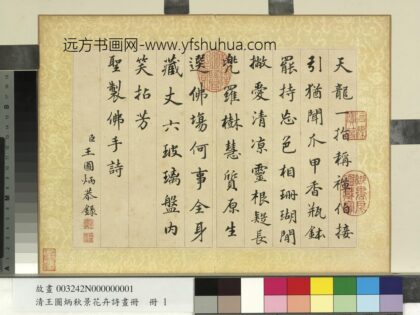 远方书画网-www.yfshuhua.com
天龍一指稱禪伯接
引猶聞爪甲香瓶鉢
罷持忘色相珊瑚閒
擬愛清凉靈根疑長
兜羅樹慧質原生
選佛場何事全身
藏丈六玻璃盤內
笑拈芳
聖製佛手詩
臣王圖炳恭錄
故畫 003242N000000001
清王圖炳秋景花卉詩畫冊 冊 1